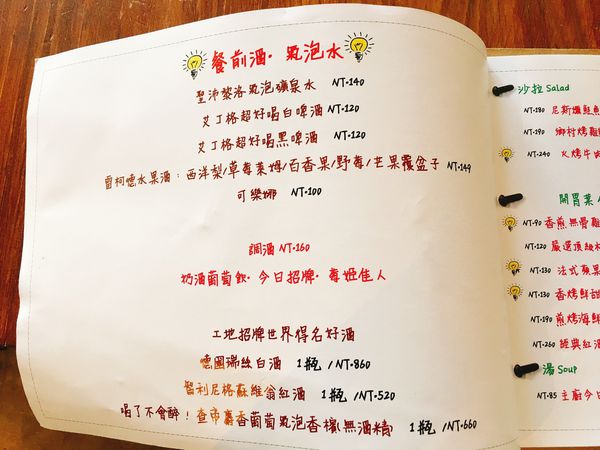 餐前酒·氣泡水
聖沛黎洛氣泡礦泉水 NT·140
艾丁格超好喝白啤酒 NT·120
艾丁格超好喝黑啤酒 NT·120
雷柯德水果酒：西洋梨/草莓萊姆/百香果/野莓/芒果覆盆子 NT·149
可樂娜 NT·100
調酒 NT·160
奶酒葡萄飲·今日招牌·莓姬佳人
工地招牌世界得名好酒
德國瑞絲白酒 1瓶/NT·860
智利尼格蘇維翁紅酒 1瓶/NT·520
喝了不會醉！查帝麝香葡萄氣泡香檳(無酒精) 1瓶/NT·660
沙拉 Salad
NT·180 尼斯燻鮭魚
NT·180 鄉村烤雞
NT·240 火烤牛
開胃菜
NT·90 香煎無骨雞
NT·120 嚴選頂級
NT·130 法式蘋果
NT·130 香烤鮮甜
NT·190 煎烤海鮮
NT·260 經典紅酒
湯 Soup
NT·85 主廚今日